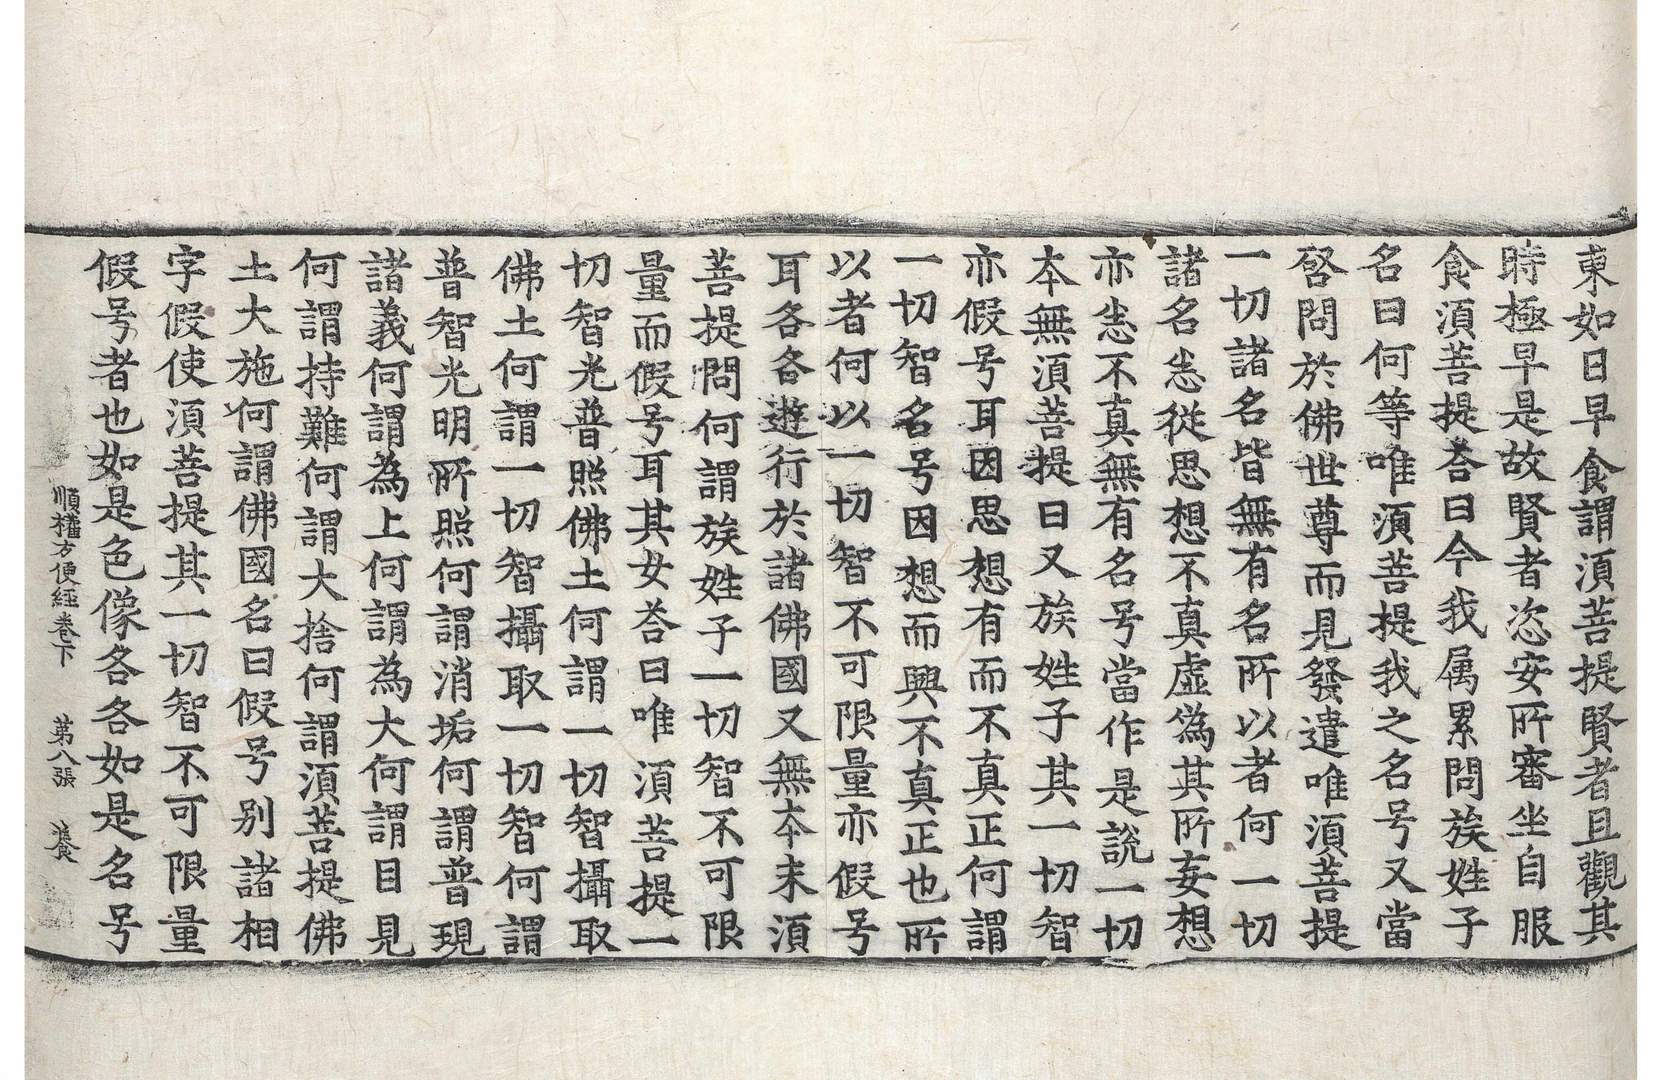 東如日早食謂湏菩提賢者且觀其
時極早是故賢者恣安所審坐自服
食湏菩提荅曰今我属累問族姓子
名曰何等唯湏菩提我之名号又當
啓問於佛世尊而見發遣唯湏菩提
一切諸名皆無有名所以者何一切
諸名恙從思想不真虛偽其所妄想
亦恙不真無有名号當作是說一切
本無湏菩提曰又族姓子其一切智
亦假号耳因思想有而不真正何謂
一切智名号因想而興不真正也所
以者何以一切智不可限量亦假号
耳各各遊行於諸佛國又無本末湏
菩提問何謂族姓子一切智不可限
量而假号耳其女荅曰唯湏菩提一
切智光普照佛土何謂一切智攝取
佛土何謂一切智攝取一切智何謂
普智光明所照何謂消垢何謂普現
諸義何謂為上何謂為大何謂目見
何謂持難何謂大捨何謂湏菩提佛
土大施何謂佛國名曰假号別諸相
字假使湏菩提其一切智不可限量
假号者也如是色像各各如是名号
順權方便經卷下 第八張 養